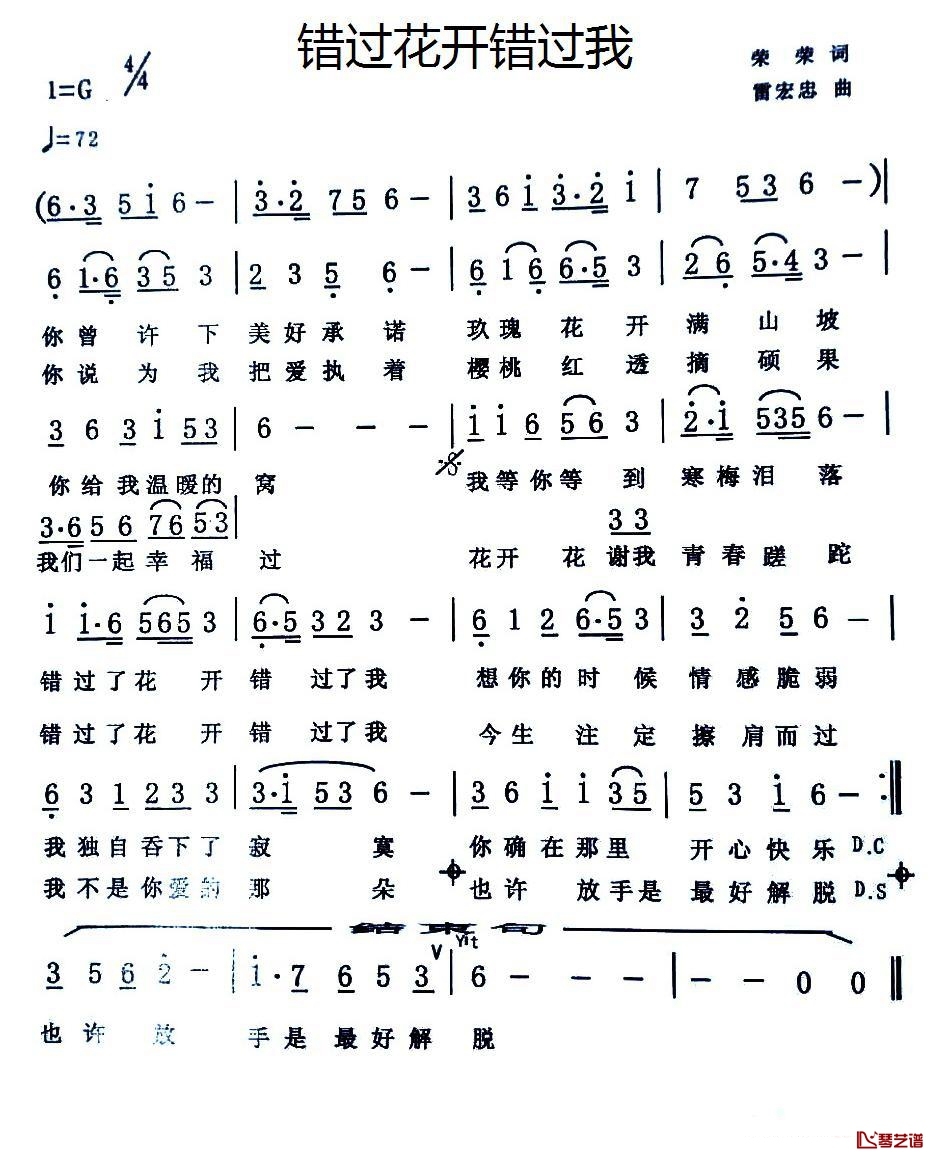 错过花开错过我
荣荣词
1=G 4/4
雷宏忠 曲
♩=72
(6·3 5i 6- | 3·2 75 6- | 36i 3·2 i | 7 53 6 -)|
6 1·6 35 3 | 2 3 5 6 - | 6 1 6 6·5 3 | 26 5·4 3 - |
你曾许下美好承诺 玖瑰花开满山坡
你说为我把爱执着 樱桃红透摘硕果
3 6 3 i 53 | 6 - - - | i i 6 56 3 | 2·i 535 6 - |
你给我温暖的窝 我等你等到寒梅泪落
3·6 56 76 53 | 33
我们一起幸福过 花开花谢我青春蹉跎
i i·6 565 3 | 6·5 323 - | 6 1 2 6·5 3 | 3 2 5 6 - |
错过了花开错过了我 想你的时候情感脆弱
错过了花开错过了我 今生注定擦肩而过
6 3 1 233 3 | 3·i 53 6 - | 3 6 i i 35 | 5 3 i 6 - :||
我独自吞下了寂寞 你确在那里开心快乐 D.C
我不是你爱的那朵 也许放手是最好解脱 D.S
结束句
V Yit
3 5 6 2 - | i·7 6 5 3 | 6 - - - | - - 0 0 ||
也许放手是最好解脱
琴艺谱